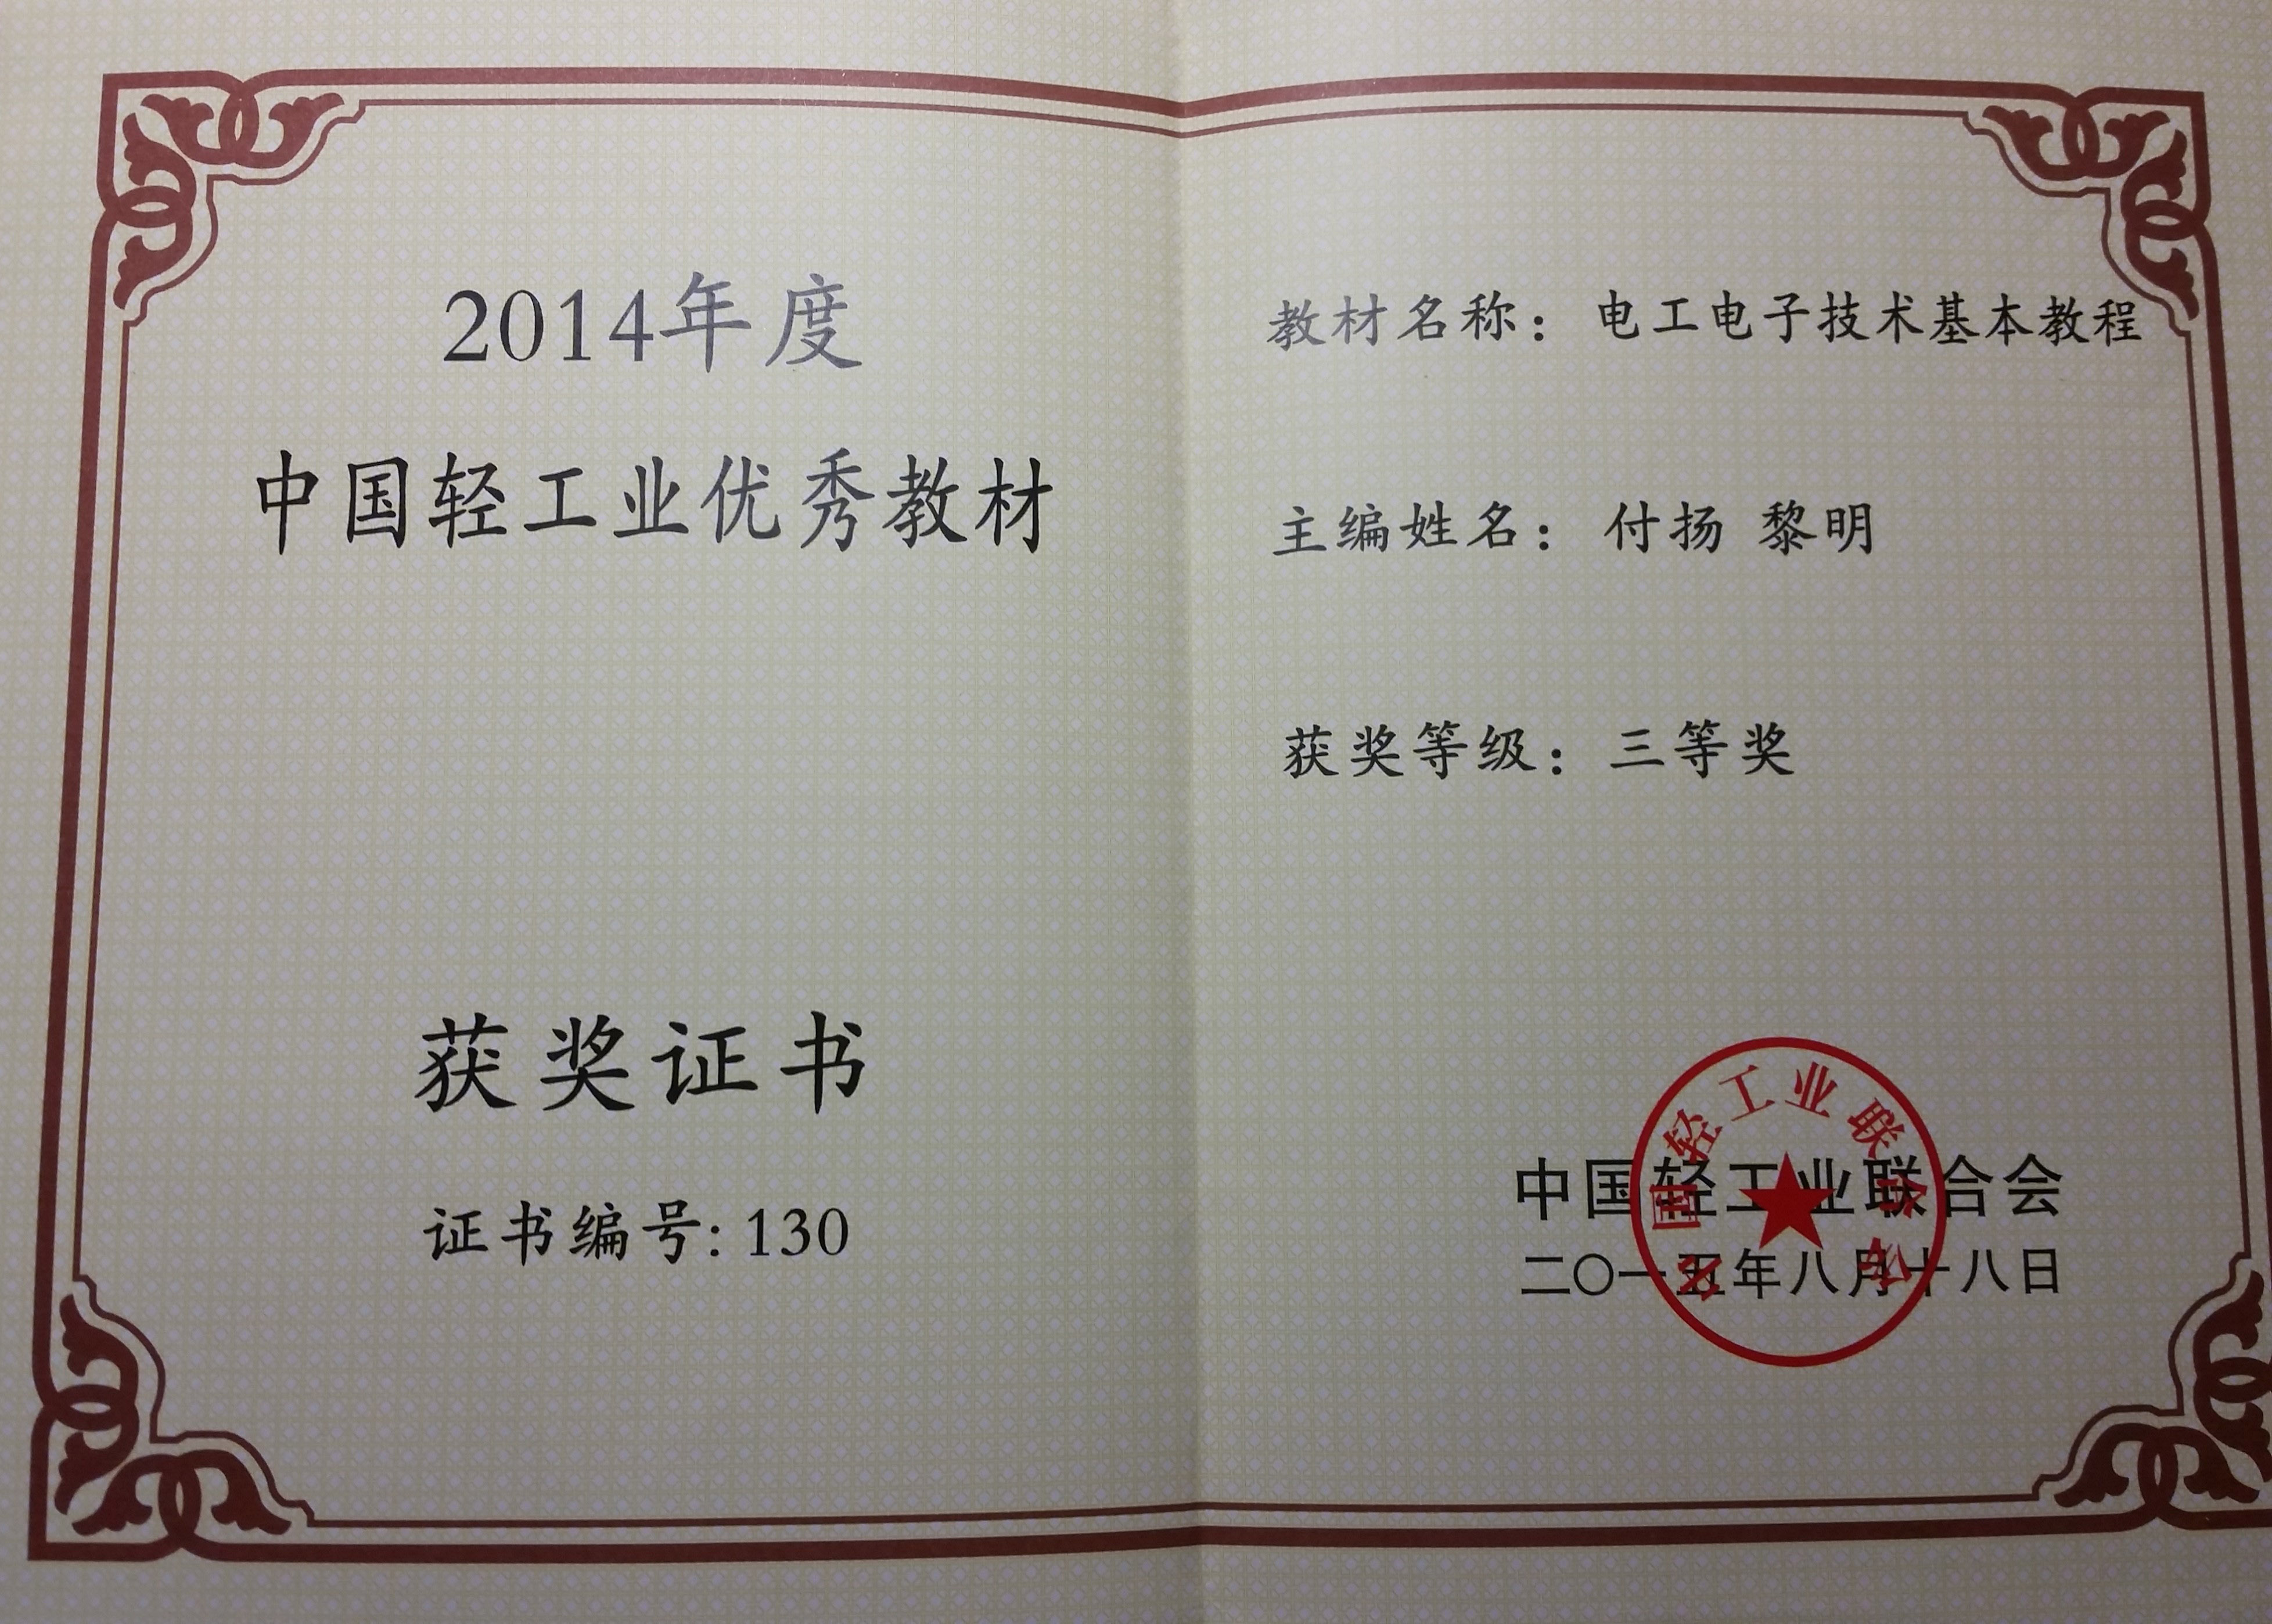 2014年度
中国轻工业优秀教材
获奖证书
证书编号: 130
教材名称：电工电子技术基本教程
主编姓名：付扬 黎明
获奖等级：三等奖
中国轻工业联合会
中国轻工业联合会
二〇一五年八月十八日